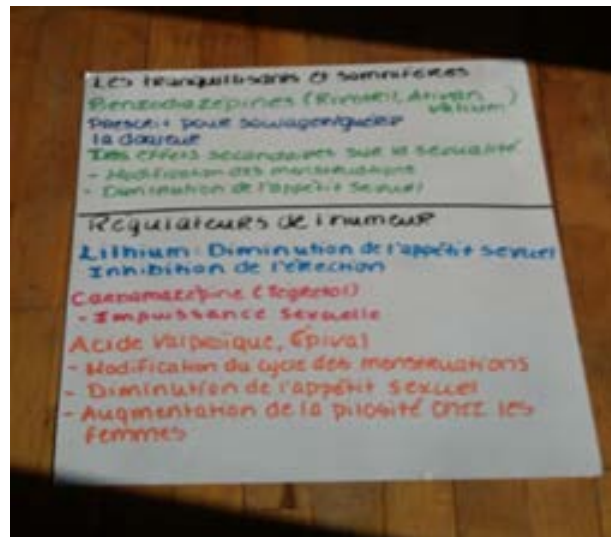 Les tranquillisants et somnifères
Benzodiazépines (Rivotril, Ativan, Valium)
Prescrit pour soulager/guérir
la douleur
Les effets secondaires sur la sexualité
- Modification des menstruations
- Diminution de l'appétit sexuel
Régulateurs de l'humeur
Lithium: Diminution de l'appétit sexuel
Inhibition de l'érection
Carbamazépine (Tegretol)
- Impuissance sexuelle
Acide Valproïque, Épival
- Modification du cycle des menstruations
- Diminution de l'appétit sexuel
- Augmentation de la pilosité chez les
femmes